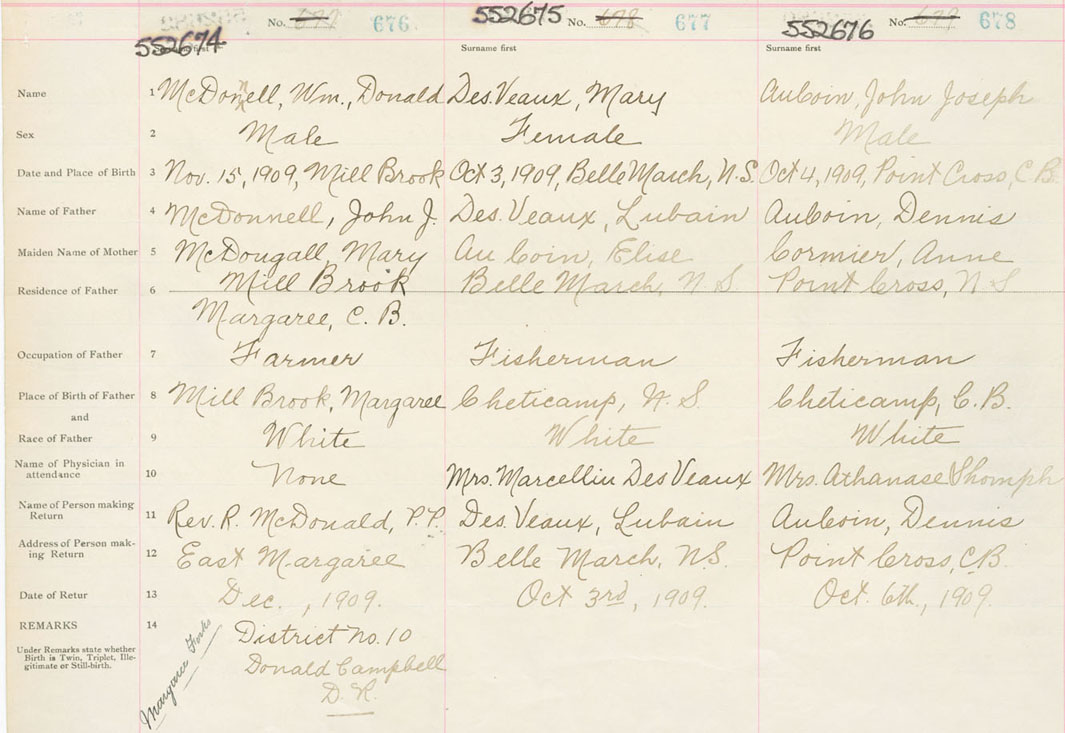 No. 676 552675 No. 678 677 No. 678
552674 Surname first 552676 Surname first
Name 1 McDonnell, Wm., Donald Des.Veaux, Mary AuCoin, John Joseph
Sex 2 Male Female Male
Date and Place of Birth 3 Nov. 15, 1909, Mill Brook Oct 3, 1909, Belle March, N.S. Oct 4, 1909, Point Cross, C.B.
Name of Father 4 McDonnell, John J. Des.Veaux, Lubain AuCoin, Dennis
Maiden Name of Mother 5 McDougall, Mary Au Coin, Elise Cormier, Anne
Residence of Father 6 Mill Brook Belle March, N.S. Point Cross, N.S
Margaree, C.B.
Occupation of Father 7 Farmer Fisherman Fisherman
Place of Birth of Father 8 Mill Brook, Margaree Cheticamp, N.S. Cheticamp, C.B.
and
Race of Father 9 White White White
Name of Physician in
attendance 10 None Mrs. Marcellin DesVeaux Mrs. Athanase
Name of Person making
Return 11 Rev. R. McDonald, P.P. Des.Veaux, Lubain AuCoin, Dennis
Address of Person mak-
ing Return 12 East Margaree Belle March, N.S. Point Cross, C.B.
Date of Retur 13 Dec. , 1909. Oct 3rd, 1909. Oct. 6th, 1909.
REMARKS 14 District No. 10
Under Remarks state whether
Birth is Twin, Triplet, Ille-
gitimate or Still-birth.
Donald Campbell
D.R.
Margaree Forks